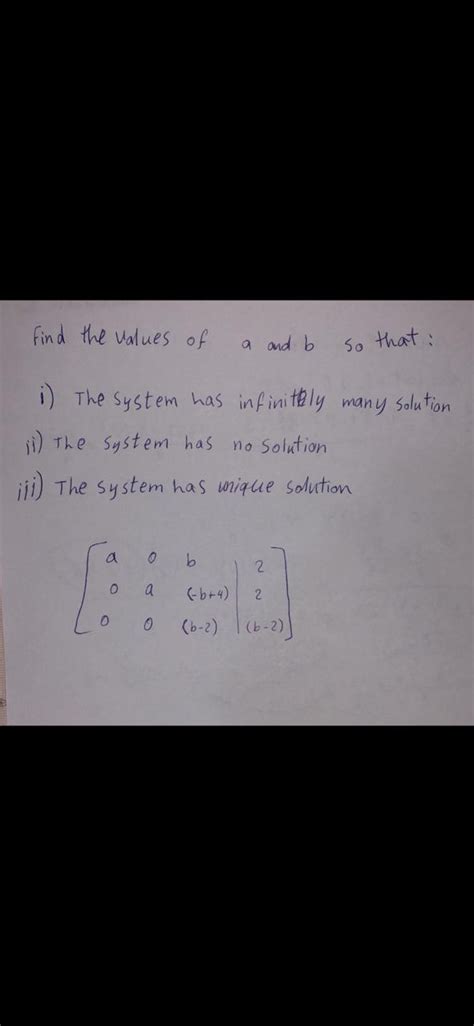 Find the values of a and b so that :
i) The system has infinitely many solution
ii) The system has no solution
iii) The system has unique solution
a 0 b 2
0 a (-b+4) 2
0 0 (b-2) (b-2)